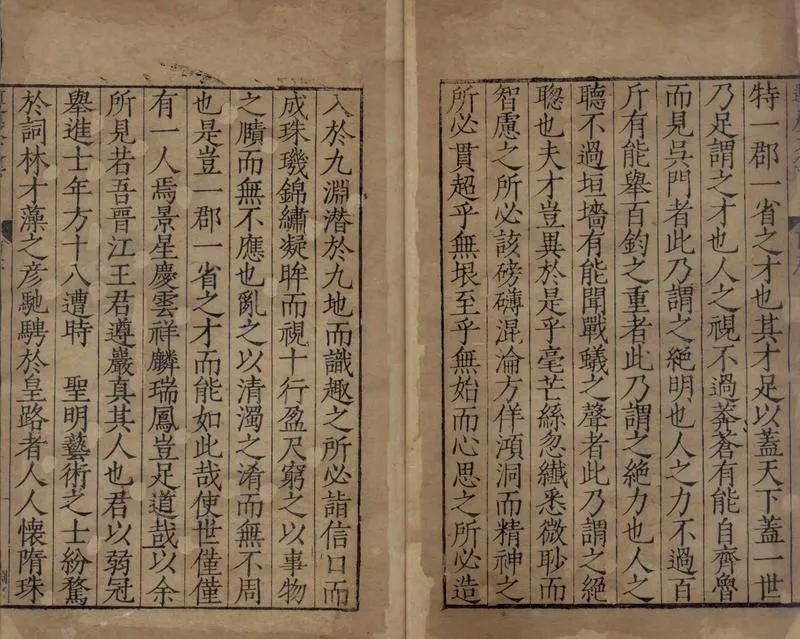 特一郡一省之才也其才足以蓋天下蓋一世
乃足謂之才也人之視不過莽蒼有能自齊魯
而見吳門者此乃謂之絕明也人之力不過百
斤有能舉百鈞之重者此乃謂之絕力也人之
聽不過垣墻有能聞戰蟻之聲者此乃謂之絕
聰也夫才豈異於是乎毫芒絲忽纎悉微眇而
智慮之所必該磅礴混淪方佯澒洞而精神之
所必貫超乎無垠至乎無始而心思之所必造
入於九淵潜於九地而識趣之所必詣信口而
成珠璣錦繡凝眸而視十行盈尺窮之以事物
之賾而無不應也亂之以清濁之淆而無不周
也是豈一郡一省之才而能如此哉使世僅僅
有一人焉景星慶雲祥麟瑞鳳豈足道哉以余
所見若吾晉江王君遵巖真其人也君以弱冠
舉進士年方十八遭時 聖明藝術之士紛騖
於詞林才藻之彦馳騁於皇路者人人懷隋珠